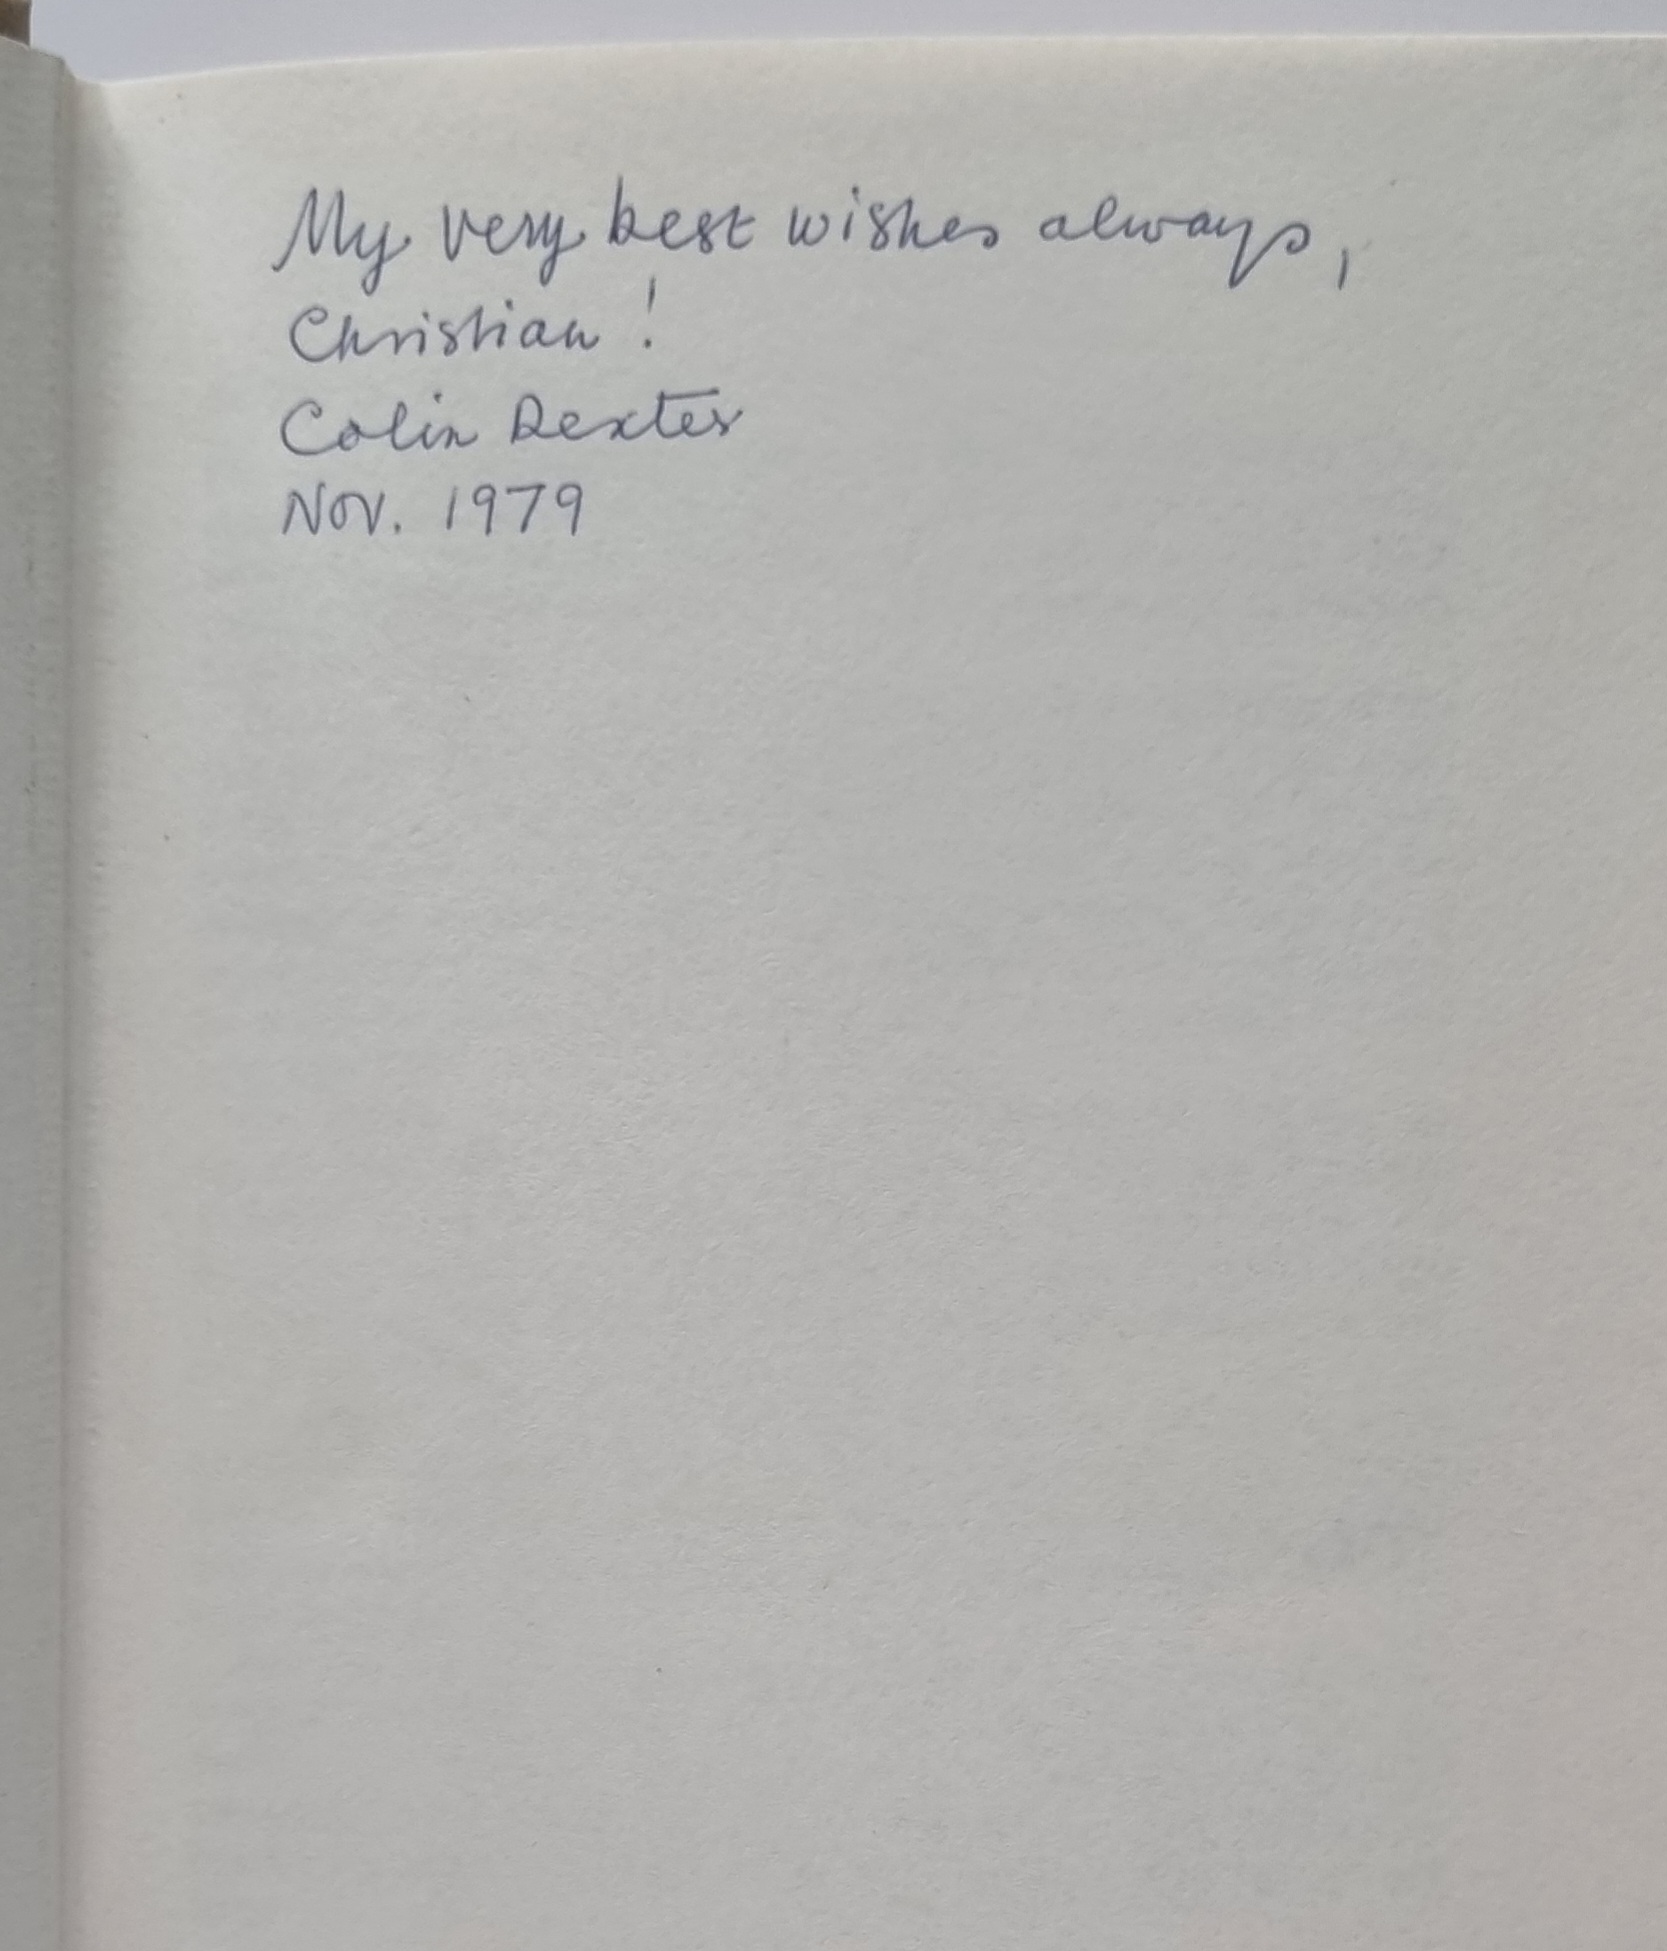 My very best wishes always,
Christian!
Colin Dexter
Nov. 1979